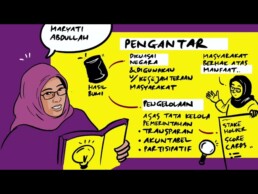 HARYATI
ABDULLAH
PENGANTAR
HASIL
BUMI
DIKUASAI
NEGARA
& DIGUNAKAN
U/ KESEJAHTERAAN
MASYARAKAT
MASYARAKAT
BERHAK ATAS
MANFAAT..
PENGELOLAAN
ASAS TATA KELOLA
PEMERINTAHAN
• TRANSPARAN
• AKUNTABEL
• PARTISIPATIF
STAKE
HOLDER
SCORE
CARDS